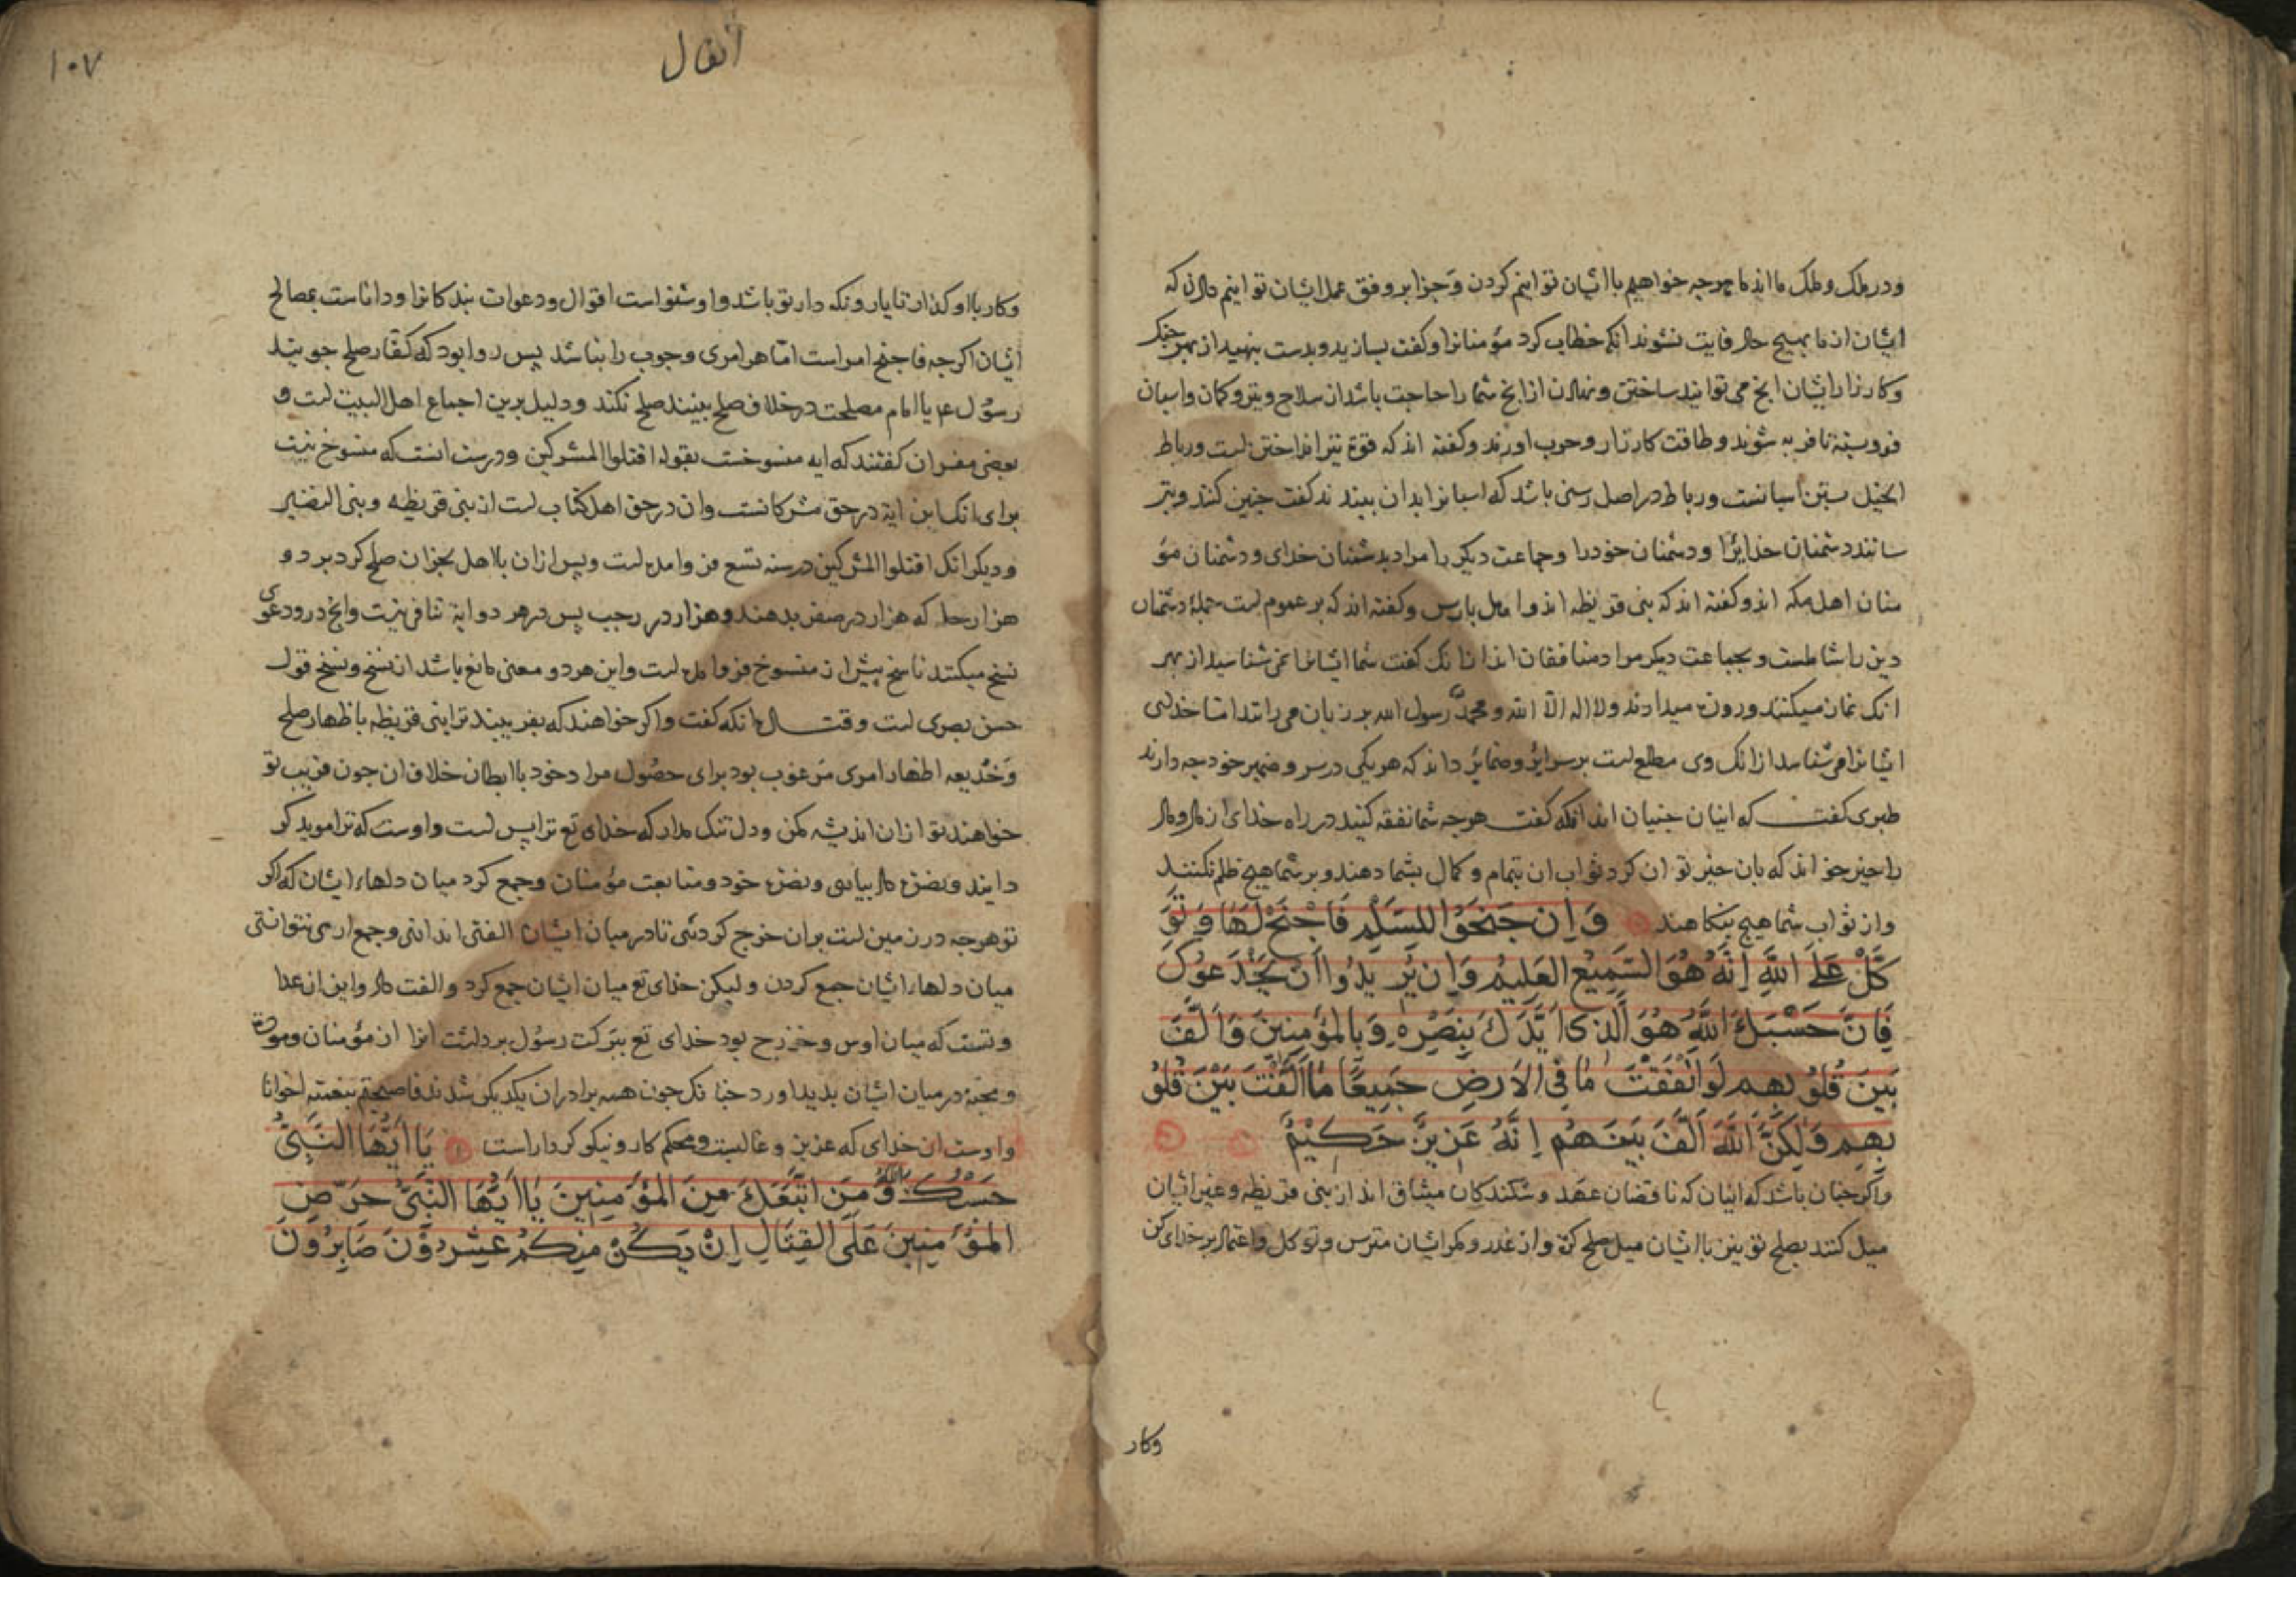 ودر ملک وملک ما اند ما هرجه خواهیم با ایشان توانیم کردن وجزا بر وفق عمل ایشان توانیم دادن که
ایشان از ما بهیچ حال فایت نشوند انکه خطاب کرد مؤمنانرا وکفت بسازید وبدست بنهید از بهر جنک
وکارزار ایشان انج می توانید ساختن ونهادن از انج شما را حاجت باشد از سلاح وتیر وکمان واسبان
فرو بسته تا فربه شوند وطاقت کارزار وحرب اورند وکفته اند که قوة تیر انداختن است ورباط
الخیل بستن اسبانست ورباط در اصل رسنی باشد که اسبانرا بدان ببندند کفت جنین کنند وبتر
سانند دشمنان خدایرا ودشمنان خود را وجماعت دیکر را مراد بدشمنان خدای ودشمنان مؤ
منان اهل مکه اند وکفته اند که بنی قریظه اند واهل پارس وکفته اند که بر عموم است جملۀ دشمنان
دین را شاملست وبجماعت دیکر مراد منافقان اند انانک کفت شما ایشانرا نمی شناسید از بهر
انک نماز میکنند وروزه میدارند ولا اله الا الله ومحمد رسول الله بر زبان می رانند اما خدای
ایشانرا می شناسد از انک وی مطلع است بر سرایر وضمایر داند که هر یکی در سر وضمیر خود جه دارند
طبری کفت که اینان جنیان اند انکه کفت هرجه شما نفقه کنید در راه خدای از مال ومال
را خیر خواند که بان خیر توان کرد ثواب ان بتمام وکمال بشما دهند وبر شما هیچ ظلم نکنند
واز ثواب شما هیچ بنکاهند وَاِن جَنَحَوْا لِلسَلْمِ فَاجْنَحْ لَهَا وَتَوَ
كَّلْ عَلَى اللهِ اِنَّهُ هُوَ السَّمِيْعُ العَلِيْمُ وَاِن يُرِيْدُوا اَنْ يَخْدَعوُكَ
فَاِنَّ حَسْبَكَ اللهُ هُوَ الَّذِى اَيَّدَكَ بِنَصْرِهِ وَبِالمؤمِنِينَ وَاَلَّفَ
بَينَ قُلوُبِهِم لَو اَنْفَقْتَ مَا فِى الاَرضِ جَمِيعًا مَا اَلَّفْتَ بَيْنَ قُلوُ
بِهِم وَلٰكِنَّ اللهَ اَلَّفَ بَيْنَهُم اِنَّهُ عَزِيزٌ حَكِيْمٌ
واکر جنان باشد که اینان که ناقضان عهد وشکنندکان میثاق اند از بنی قریظه وغیر ایشان
میل کنند بصلح تو نیز با ایشان میل صلح کن واز غدر ومکر ایشان مترس وتوکل واعتماد بر خدای کن
وکار
١٠٧
أنفال
وکار با او کذار تا یار ونکه دار تو باشد واو شنواست اقوال ودعوات بندکانرا وداناست بمصالح
ایشان اکرجه فاجنح امر است اما هر امری وجوب را بناشد پس روا بود که کفار صلح جویند
رسول ع یا امام مصلحت در خلاف صلح بینند صلح نکند ودلیل برین اجماع اهل البیت است و
بعضی مفسران کفتند که ایه منسوخست بقوله اقتلوا المشرکین ودرست انست که منسوخ نیست
برای انک این ایة در حق مشرکانست وان در حق اهل کتاب است از بنی قریظه وبنی النضیر
ودیکر انک اقتلوا المشرکین در سنه تسع فرو امده است وپس از ان با اهل نجران صلح کرد بر دو
هزار حله که هزار در صفر بدهند وهزار در رجب پس در هر دو ایة تنافی نیست وانج درو دعوی
نسخ میکنند ناسخ پیش از منسوخ فرو امده است واین هر دو معنی مانع باشد از نسخ ونسخ قول
حسن بصری است وقتاده انکه کفت واکر خواهند که بفریبند ترا بنی قریظه باظهار صلح
وخدیعه اظهار امری مرغوب بود برای حصول مراد خود با ابطان خلاف ان جون فریب تو
خواهند تو از ان اندیشه مکن ودل تنک مدار که خدای تع ترا پس است واوست که ترا موید کر
دانید ونصرة داد بیاری ونصرة خود ومتابعت مؤمنان وجمع کرد میان دلهاء ایشان که اکر
تو هرجه در زمین است بران خرج کردئی تا در میان ایشان الفتی اندازی وجمع اری نتوانستی
میان دلهاء ایشان جمع کردن ولیکن خدای تع میان ایشان جمع کرد والفت داد واین از عدا
وتست که میان اوس وخزرج بود خدای تع ببرکت رسول برداشت انرا از مؤمنان ومودة
ومحبة در میان ایشان بدید اورد جنانک جون همه برادران یکدیکر شدند فاصبحتم بنعمته اخوانا
واوست ان خدای که عزیز وغالبست ومحکم کار ونیکو کردار است يَا اَيُّهَا النَّبِىُّ
حَسْبُكَ اللهُ وَمَنِ اتَّبَعَكَ مِنَ المْؤمِنِينَ يَا اَيُّهَا النَّبِىُّ حَرّضِ
المْؤمِنِينَ عَلَى القِتَالِ اِنْ يَكُنْ مِنْكُمْ عِشْرُوْنَ صَابِرُوْنَ